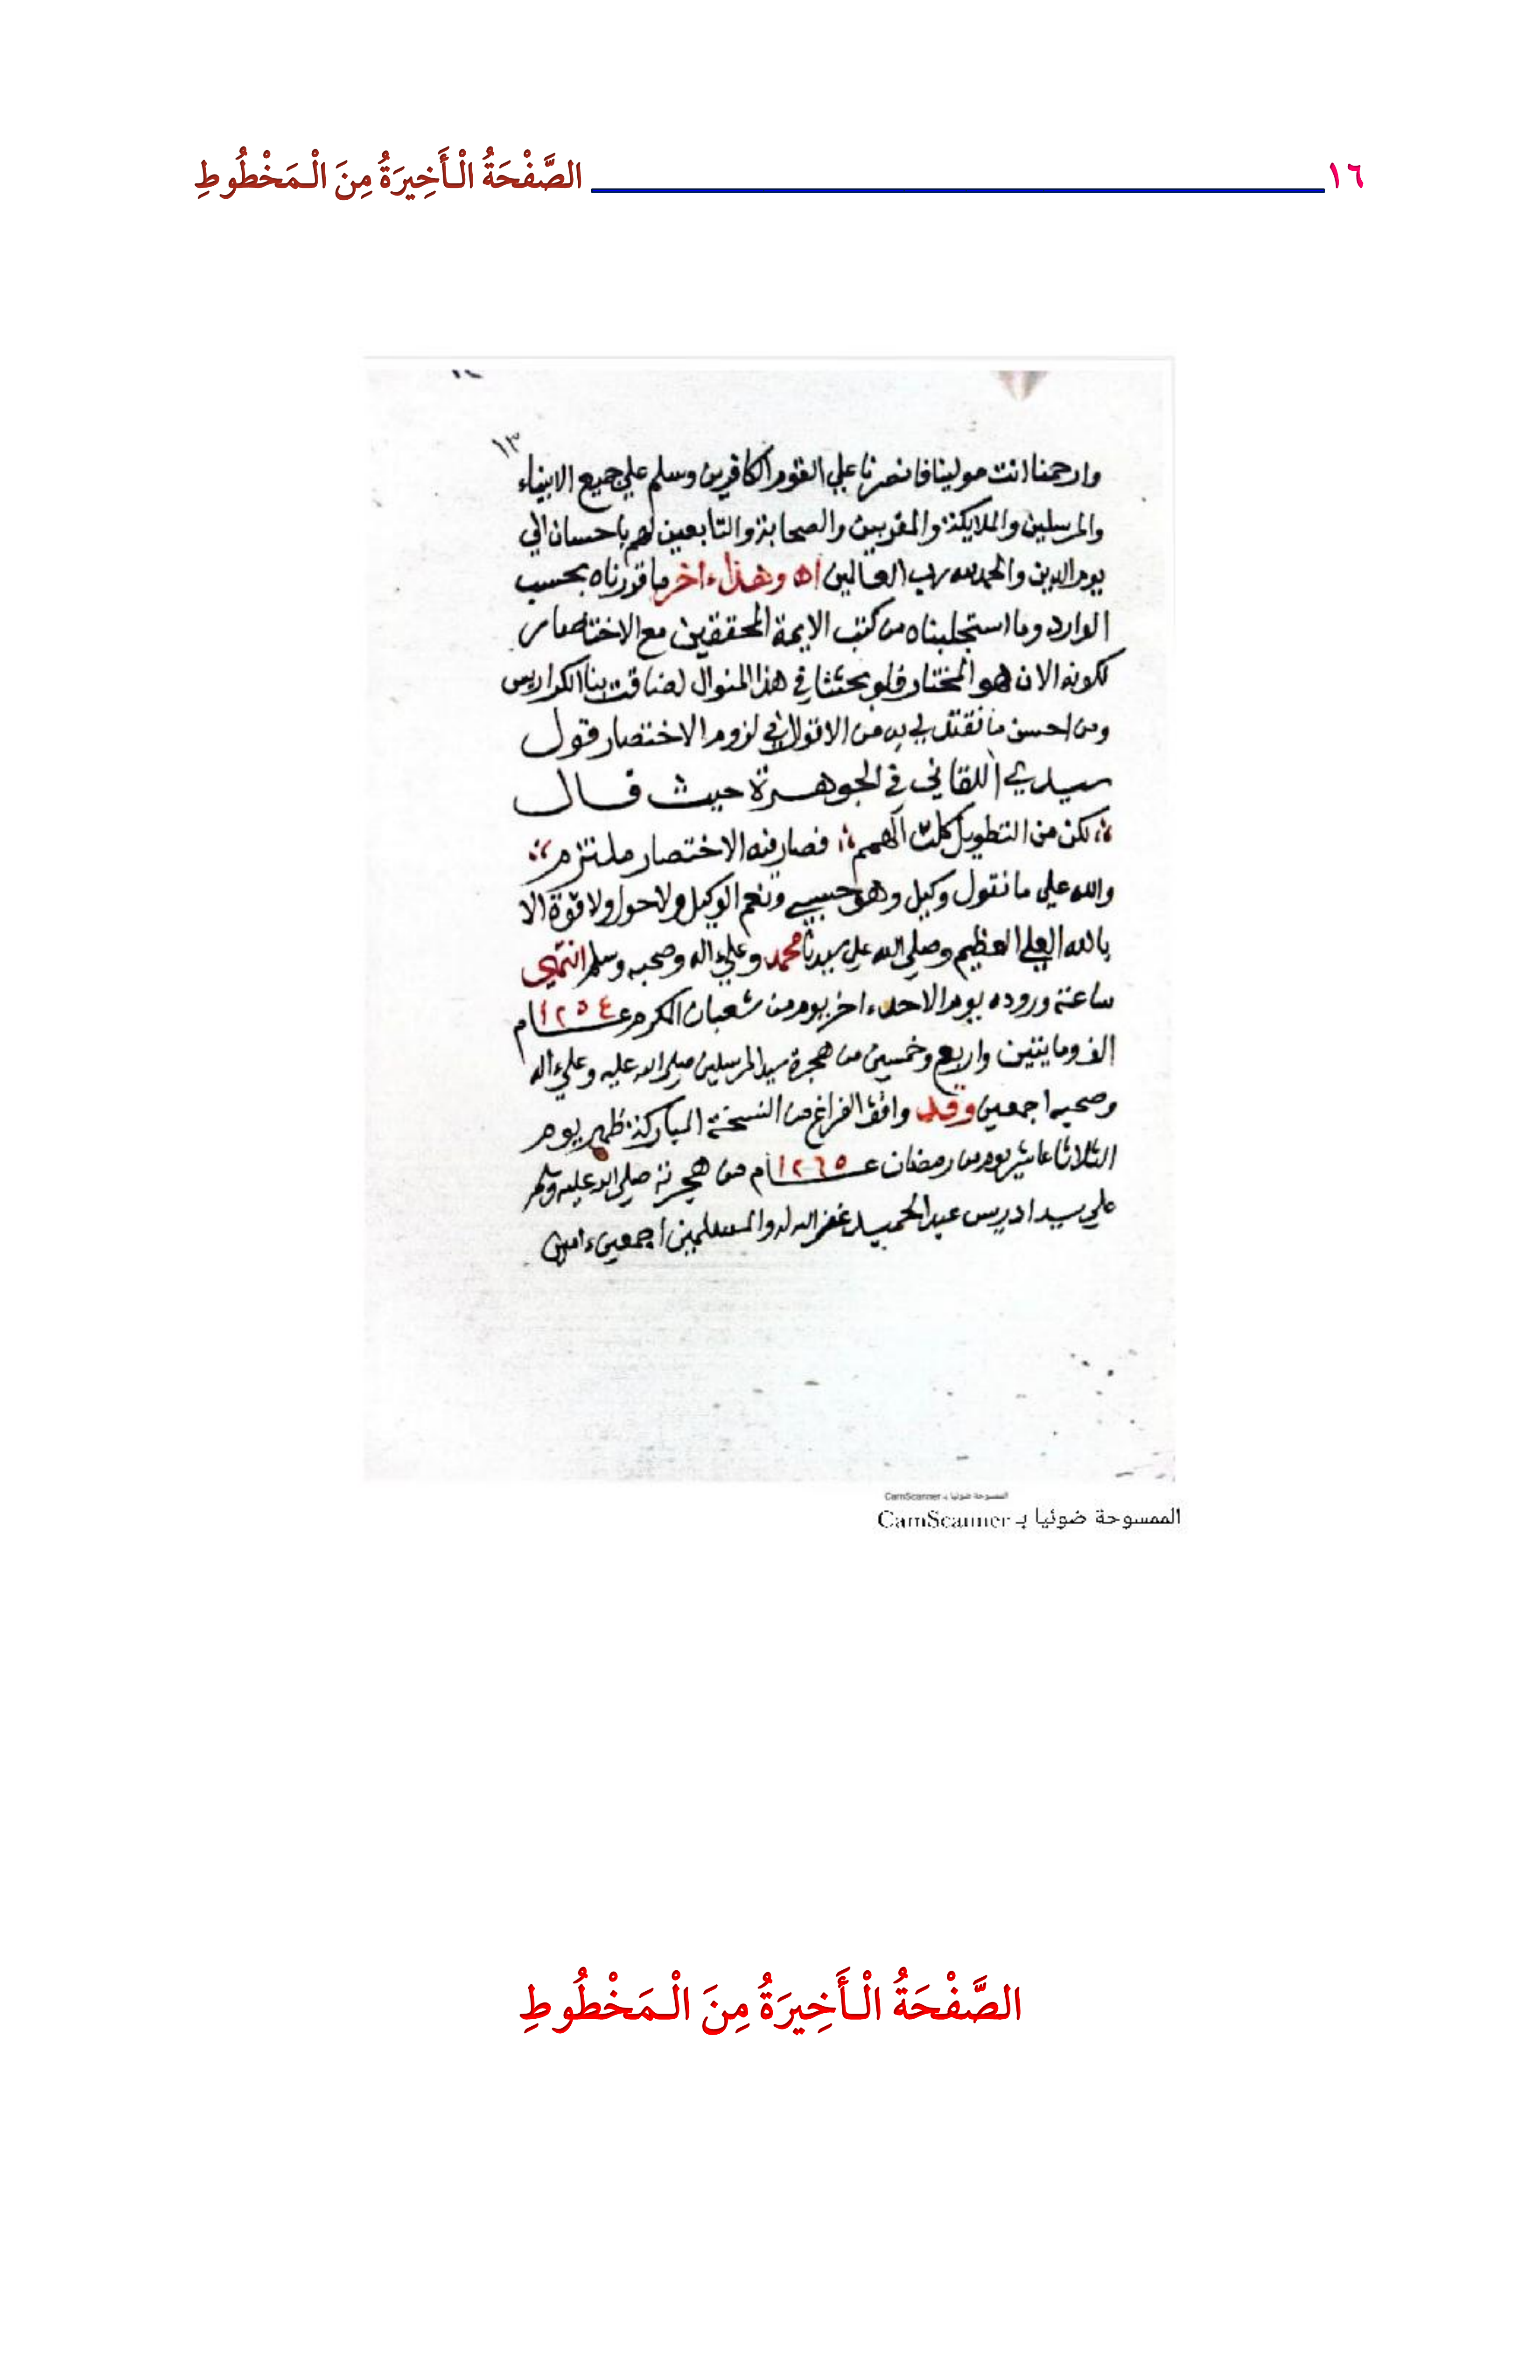 ١٦ الصَّفْحَةُ الْأَخِيرَةُ مِنَ الْمَخْطُوطِ
١٣
وارحمنا انت مولينا فانصرنا علي القوم الكافرين وسلم علي جميع الانبياء
والمرسلين والملايكة والمقربين والصحابة والتابعين لهم باحسان الي
يوم الدين والحمد لله رب العالمين اه وهذا ءاخر ما قررناه بحسب
الوارد وما استجلبناه من كتب الايمة المحققين مع الاختصار
لكونه الان هو المختار فلو بحثنا في هذا المنوال لضاقت بنا الكراريس
ومن احسن ما نقتدي به من الاقوال في لزوم الاختصار قول
سيدي اللقاني في الجوهرة حيث قال
لكن من التطويل كلت الهمم فصار فيه الاختصار ملتزم
والله علي ما نقول وكيل وهو حسبي ونعم الوكيل ولا حول ولا قوة الا
بالله العلي العظيم وصلي الله علي سيدنا محمد وعلي اله وصحبه وسلم انتهي
ساعة وروده يوم الاحد ءاخر يوم من شعبان المكرم عام ١٢٥٤
الف ومايتين واربع وخمسين من هجرة سيد المرسلين صلي الله عليه وعلي اله
وصحبه اجمعين وقد وافق الفراغ من النسخة المباركة ظهر يوم
الثلاثا عاشر يوم من رمضان عام ١٢٦٥ من هجرته صلي الله عليه وسلم
علي يد ادريس عبد الحميد غفر الله له والمسلمين اجمعين ءامين
الممسوحة ضوئيا بـ CamScanner
الممسوحة ضوئيا بـ CamScanner
الصَّفْحَةُ الْأَخِيرَةُ مِنَ الْمَخْطُوطِ